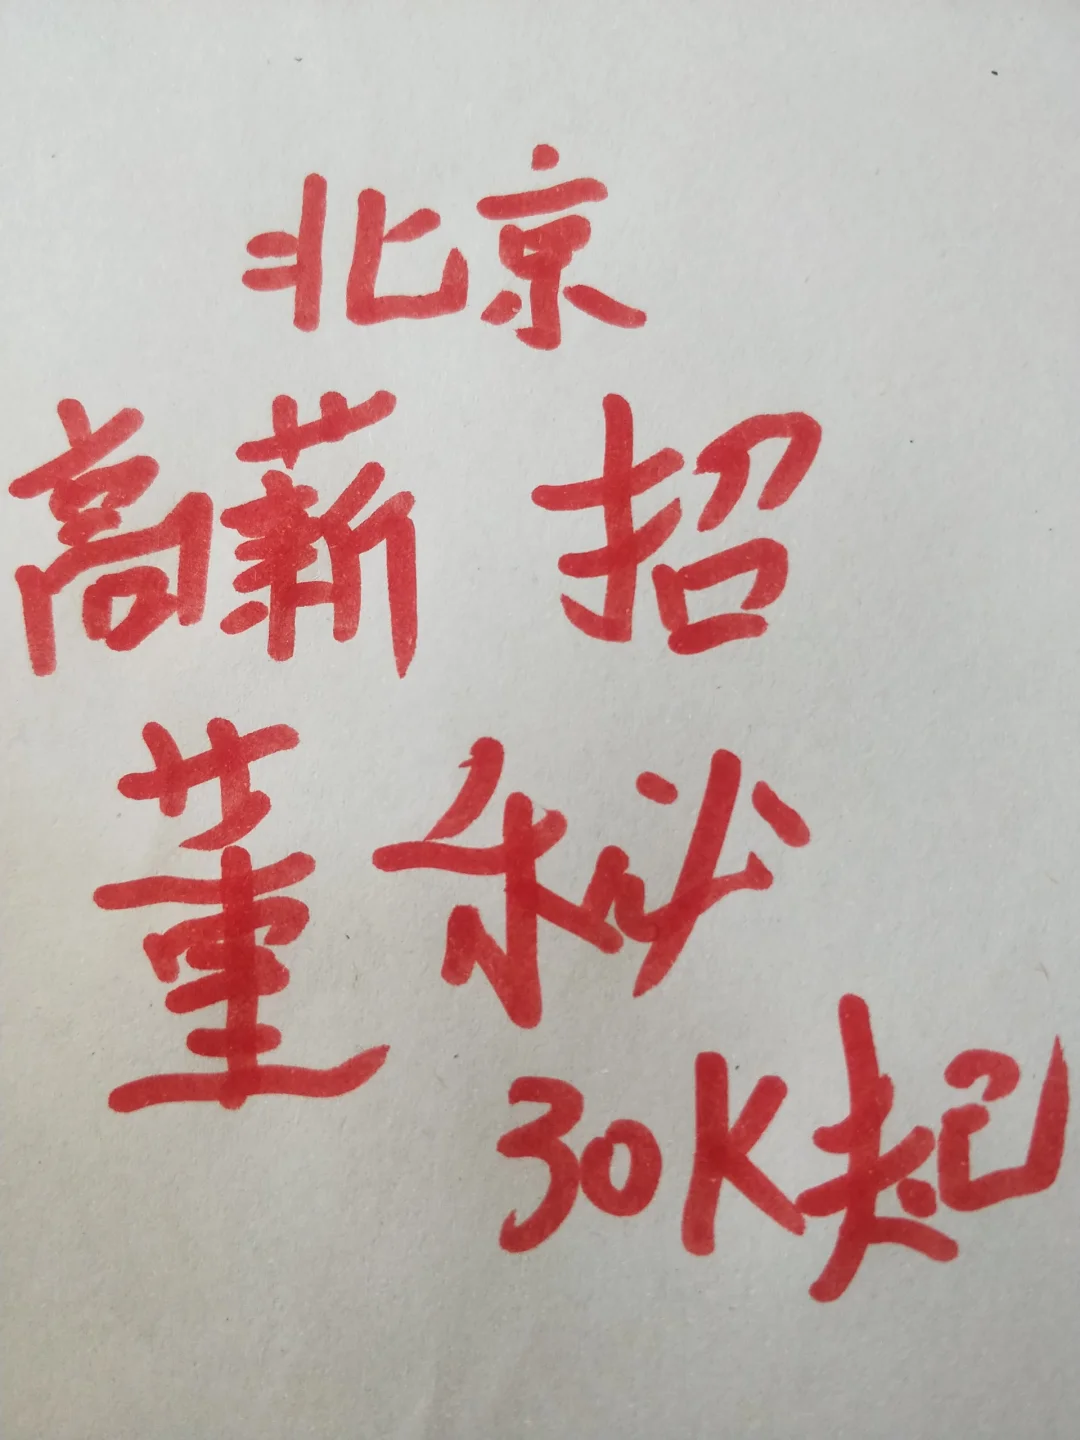 北京
高薪 招
董 秘
30K起